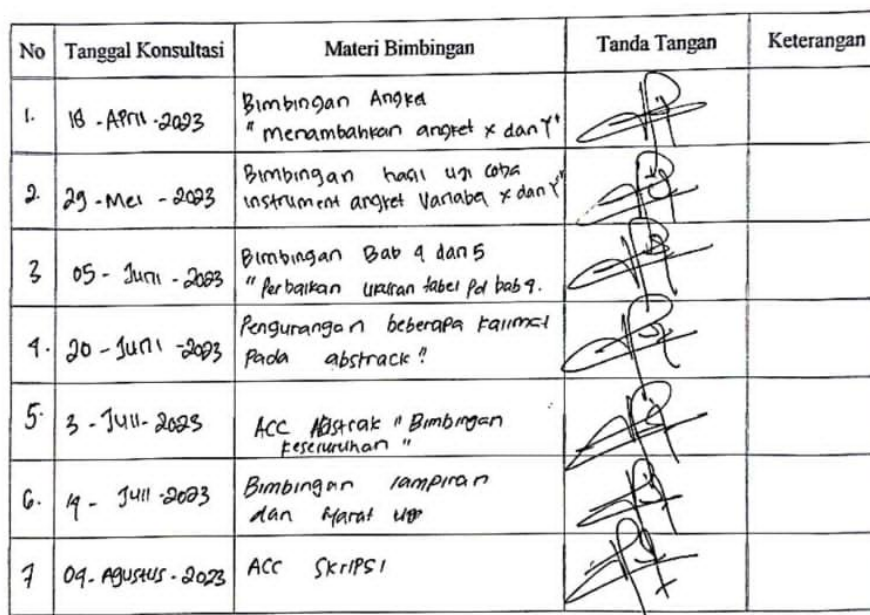 No Tanggal Konsultasi Materi Bimbingan Tanda Tangan Keterangan
1. 18 - April - 2023 Bimbingan Angket
" menambahkan angket x dan Y"
2. 29 - Mei - 2023 Bimbingan hasil uji coba
instrument angket Variabel x dan Y"
3 05 - Juni - 2023 Bimbingan Bab 4 dan 5
" Perbaikan ukuran tabel Pd bab 4.
4. 20 - Juni - 2023 Pengurangan beberapa kalimat
Pada abstrack"
5. 3 - Juli - 2023 ACC Abstrak " Bimbingan
keseluruhan "
6. 14 - Juli 2023 Bimbingan lampiran
dan
7 04 - Agustus - 2023 ACC SKRIPSI